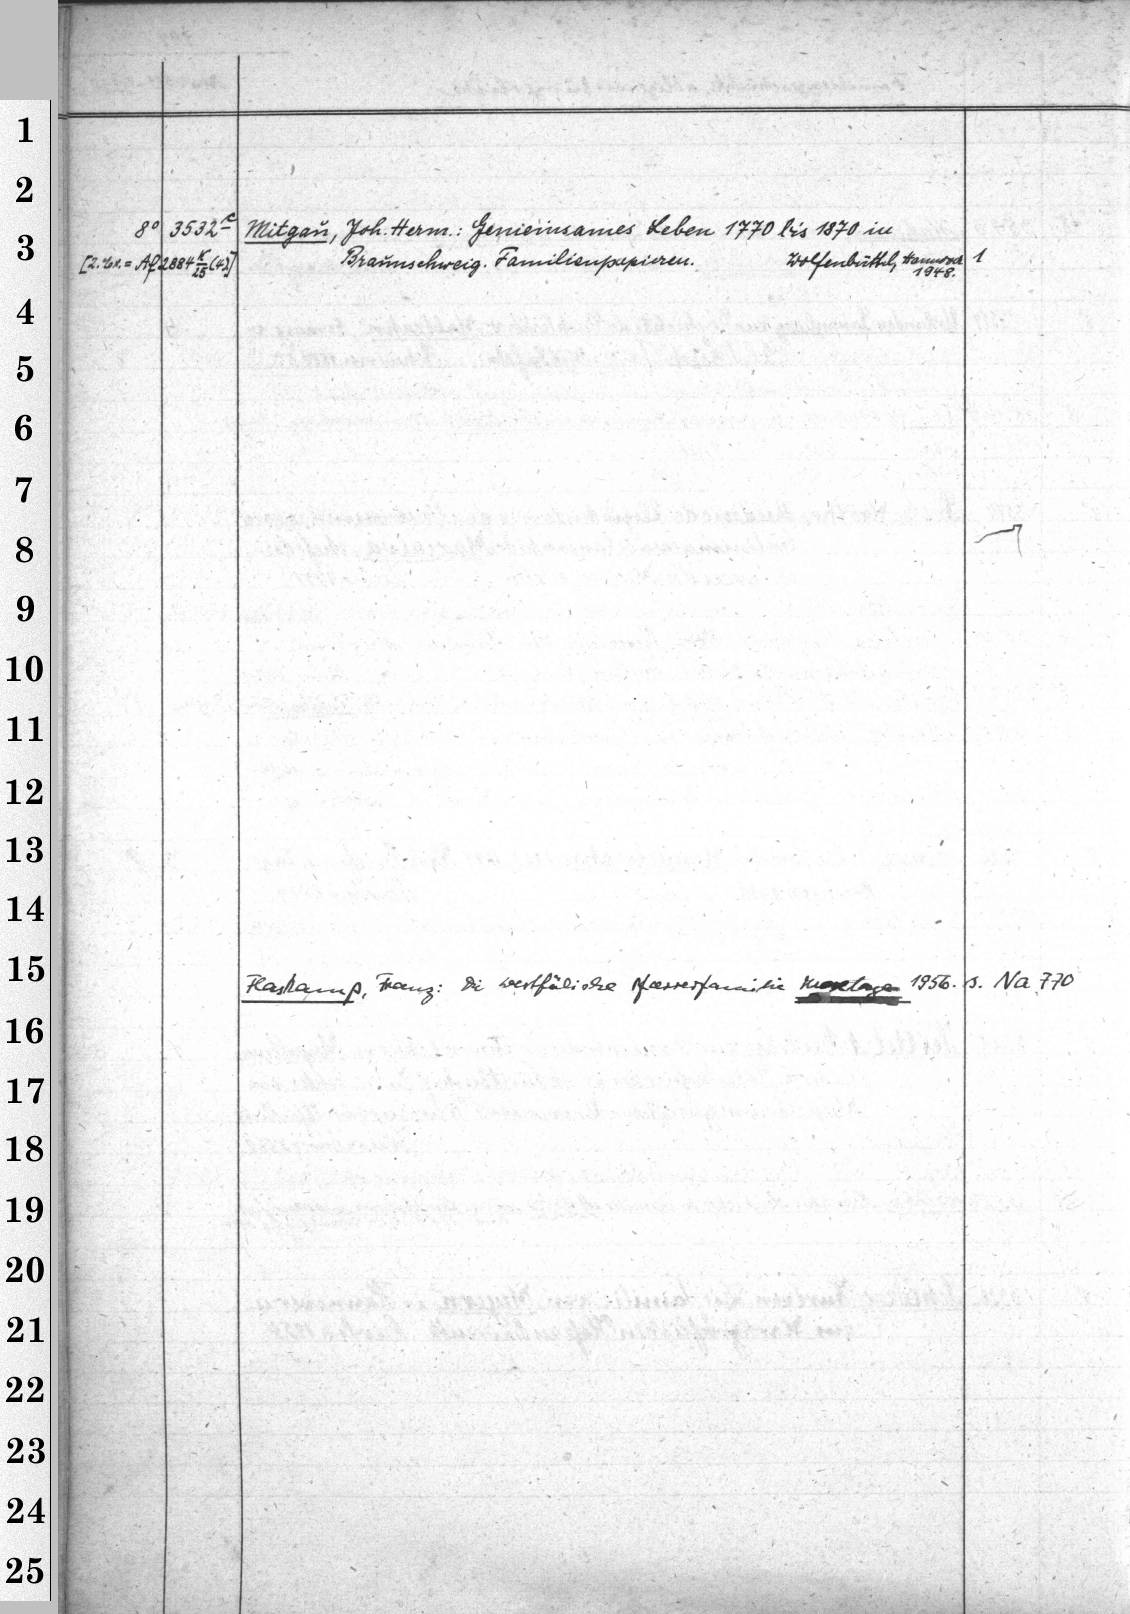 1
2
8° 3532 c Mitgaŭ, Joh. Herm.: Gemeinsames Leben 1770 bis 1870 in
3
[2. Ex. = Af 2884 K/15 (4)] Braŭnschweig. Familienpapieren. Wolfenbüttel, Hannover 1948. 1
4
5
6
7
8
9
10
11
12
13
14
15
Flaskamp, Franz: Die westfälische Pfarrerfamilie 1956. s. Na 770
16
17
18
19
20
21
22
23
24
25